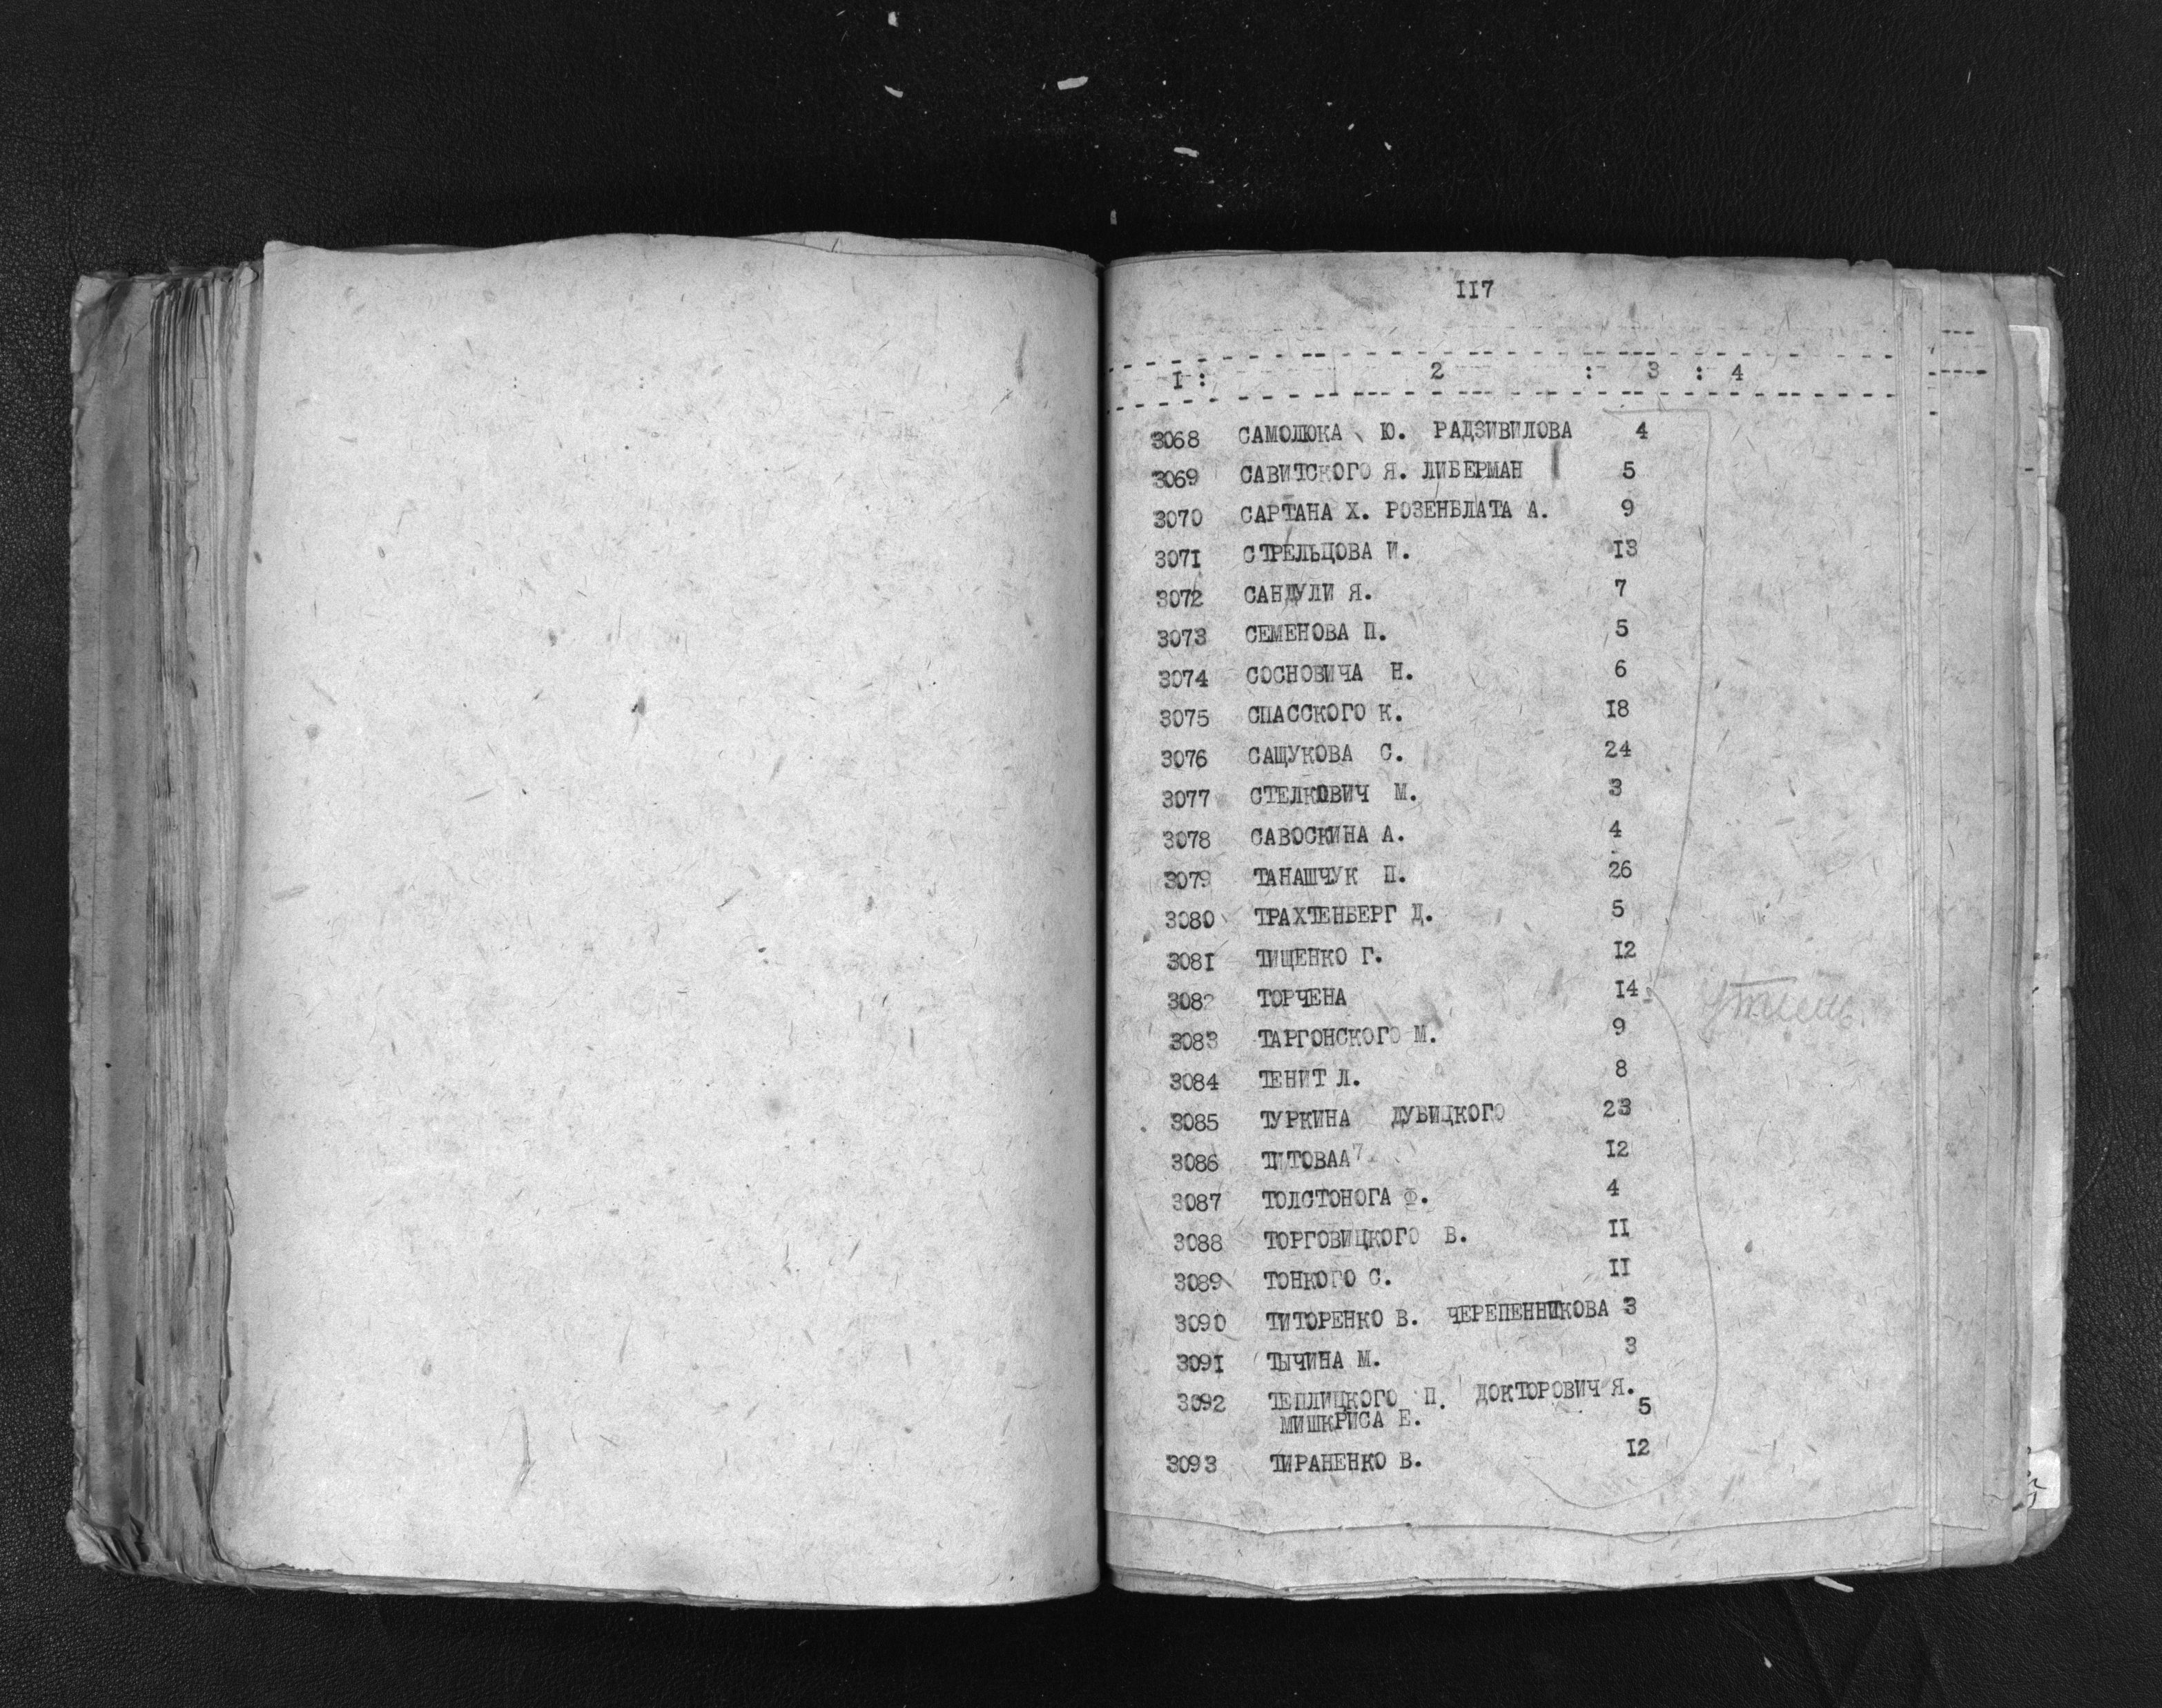 117
1 : 2 : 3 : 4
3068 САМОЛЮКА Ю. РАДЗИВИЛОВА 4
3069 САВИТСКОГО Я. ЛИБЕРМАН 5
3070 САРТАНА Х. РОЗЕНБЛАТА А. 9
3071 СТРЕЛЬЦОВА И. 13
3072 САНДУЛИ Я. 7
3073 СЕМЕНОВА П. 5
3074 СОСНОВИЧА Н. 6
3075 СПАССКОГО К. 18
3076 САЩУКОВА С. 24
3077 СТЕЛКОВИЧ М. 3
3078 САВОСКИНА А. 4
3079 ТАНАШЧУК П. 26
3080 ТРАХТЕНБЕРГ Д. 5
3081 ТИЩЕНКО Г. 12
3082 ТОРЧЕНА 14
3083 ТАРГОНСКОГО М. 9
3084 ТЕНИТ Л. 8
3085 ТУРКИНА ДУБИЦКОГО 23
3086 ТИТОВАА 12
3087 ТОЛСТОНОГА Ф. 4
3088 ТОРГОВИЦКОГО В. 11
3089 ТОНКОГО С. 11
3090 ТИТОРЕНКО В. ЧЕРЕПЕННИКОВА 3
3091 ТЫЧИНА М. 3
3092 ТЕПЛИЦКОГО П. ДОКТОРОВИЧ Я.
МИШКРИСА Е. 5
3093 ТИРАНЕНКО В. 12